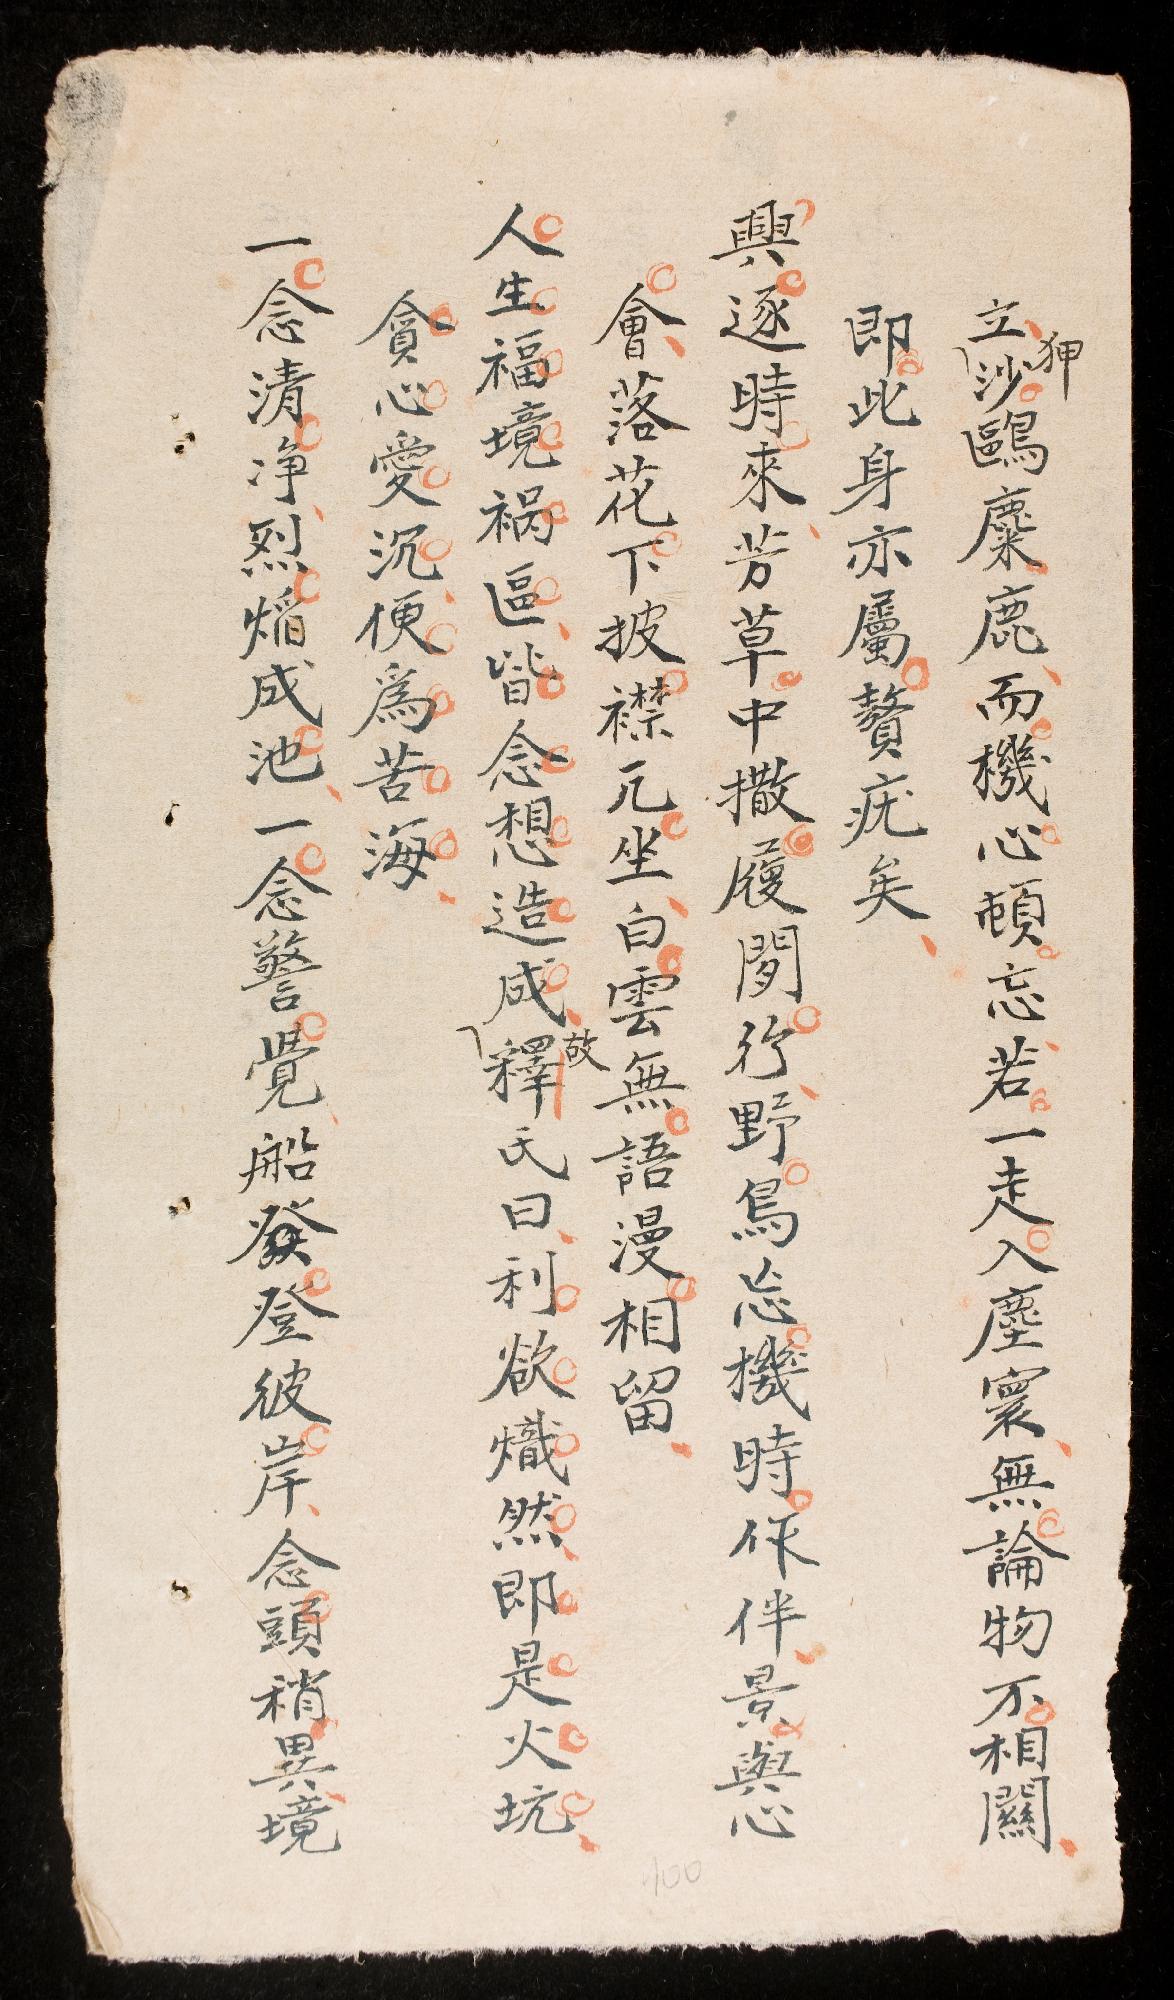 立狎沙鷗麋鹿而機心頓忘若一走入塵寰無論物不相關
即此身亦屬贅疣矣
興逐時來芳草中撒履閒行野鳥忘機時作伴景與心
會落花下披襟兀坐白雲無語漫相留
人生福境禍區皆念想造成故釋氏曰利欲熾然即是火坑
貪心愛沉便為苦海
一念清净烈焰成池一念警覺船登彼岸念頭稍異境
100